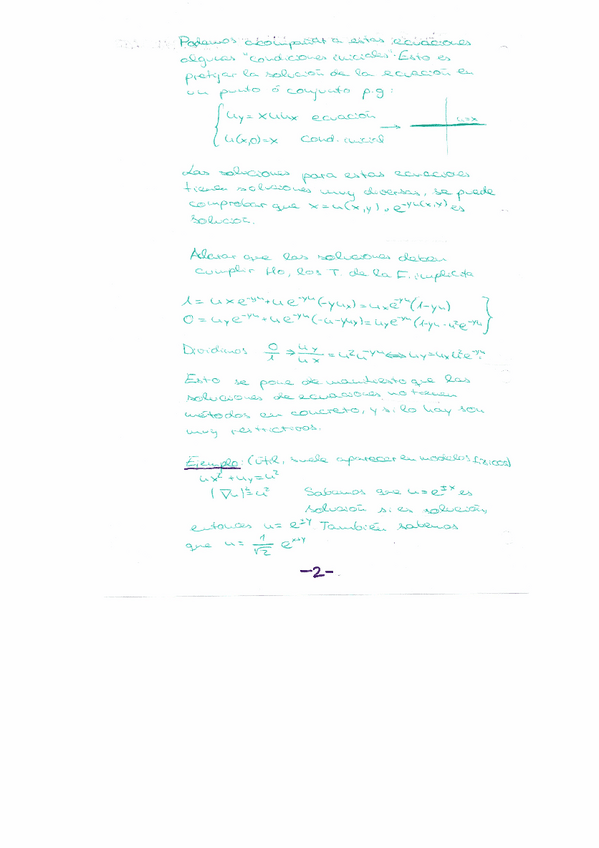 Podemos acompañar a estas ecuaciones
algunas "condiciones iniciales". Esto es
prefijar la solución de la ecuación en
un punto ó conjunto p.g:
uy = x u ux ecuación
u=x
u(x,0)=x Cond. inicial
Las soluciones para estas ecuaciones
tienen soluciones muy diversas, se puede
comprobar que x = u(x,y) · e^-yu(x,y) es
solución.
Aclarar que las soluciones deben
cumplir Ho, los T. de la F. implícita
1 = ux e^-yu + u e^-yu (-yux) = ux e^-yu (1-yu)
0 = uy e^-yu + u e^-yu (-u-yuy) = uy e^-yu (1-yu - u² e^-yu
Dividimos 0/1 ⇒ uy/ux = u² u^-yu ⇔ uy = ux u² e^-yu
Esto se pone de manifiesto que las
soluciones de ecuaciones no tienen
métodos en concreto, y si lo hay son
muy restrictivos.
Ejemplo: (útil, suele aparecer en modelos físicos)
ux² + uy = u²
|∇u|² = u² Sabemos que u = e^±x es
solución si es solución,
entonces u = e^±y También sabemos
que u = 1/√2 e^x+y
-2-